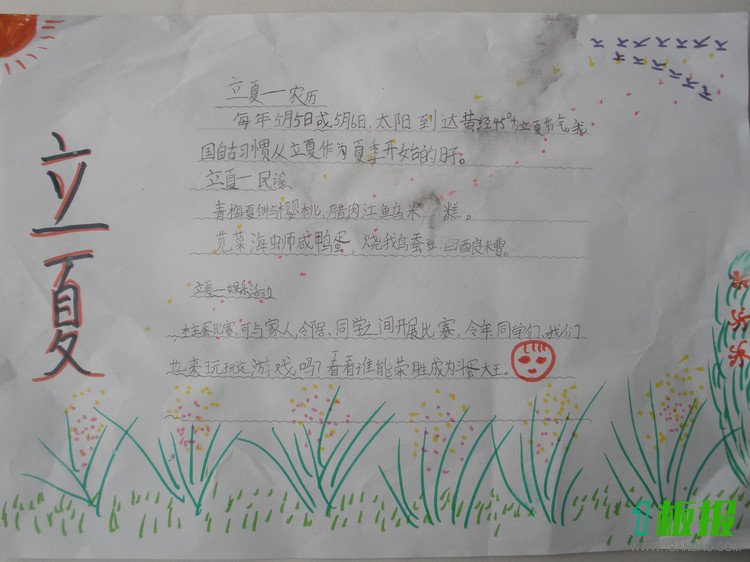 立夏
立夏一农历
每年5月5日或5月6日,太阳到达黄经45°为立夏节气。我
国自古习惯从立夏作为夏季开始的日子。
立夏一民谣
青梅夏饼与樱桃,腊肉江鱼乌米糕。
苋菜海虫师咸鸭蛋,烧我乌蚕豆
立夏一娱乐活动
蛋比赛,可与家人,令阝、同学之间开展比赛,今年同学们,我们
也来玩玩这游戏吗?看看谁能荣胜成为斗蛋大王。
板报